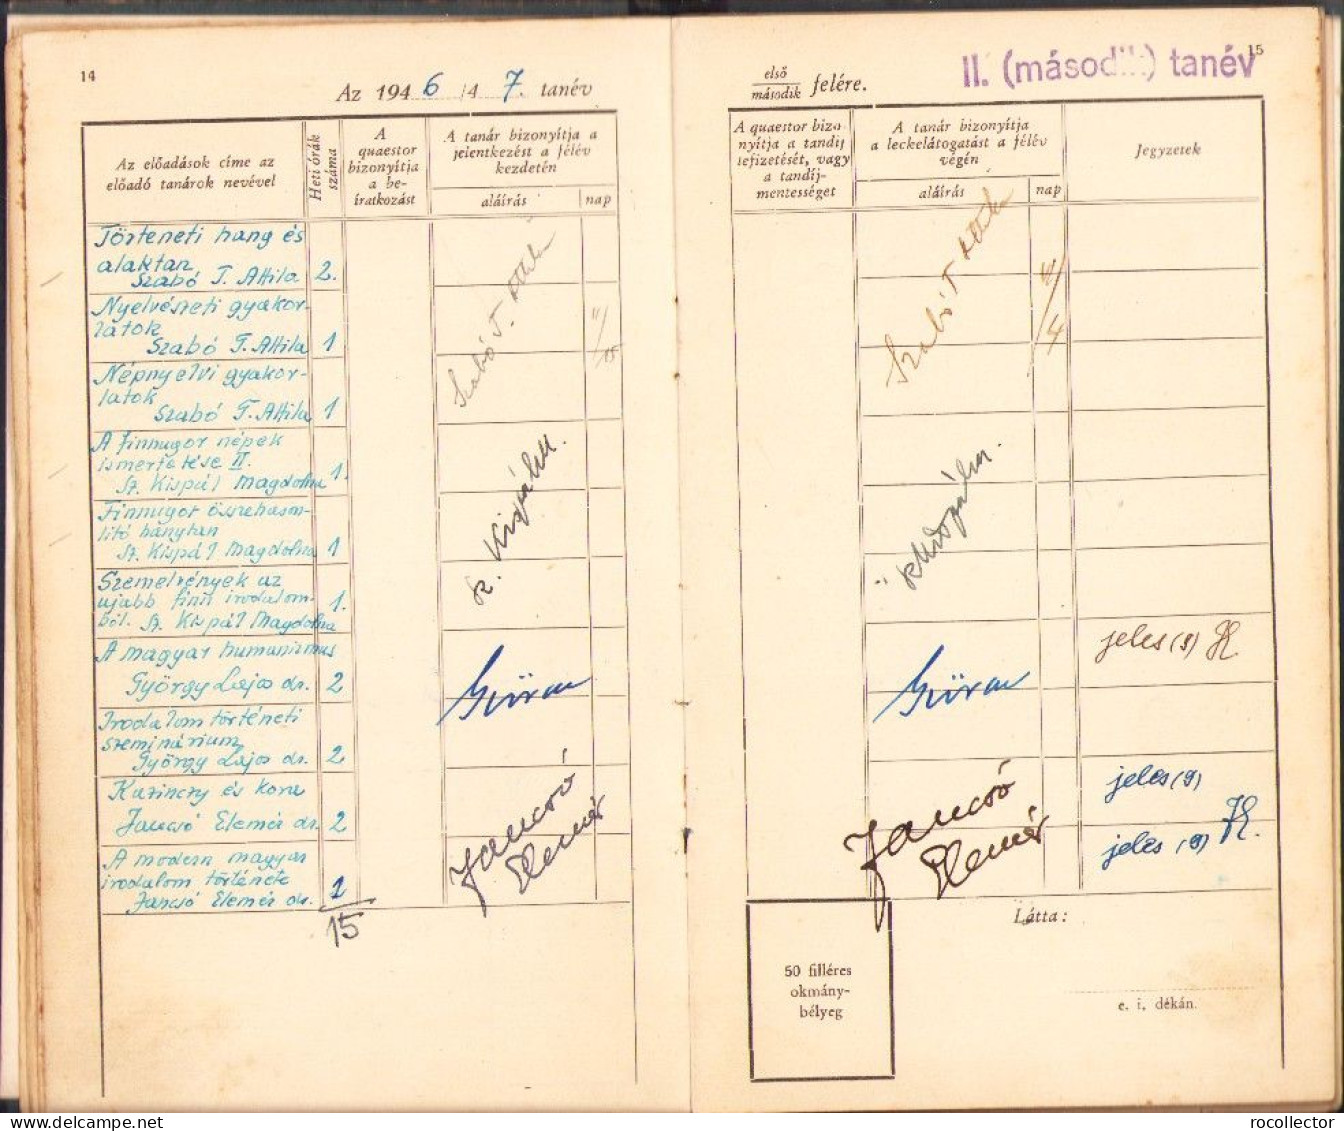 14
Az 1946/47. tanév
Az előadások címe az
előadó tanárok nevével
Heti órák
száma
A
quaestor
bizonyítja
a be-
íratkozást
A tanár bizonyítja a
jelentkezést a félév
kezdetén
aláírás
nap
Történeti hang és
alaktan
Szabó T. Attila 2.
Nyelvészeti gyakor-
latok
Szabó T. Attila 1
Népnyelvi gyakor-
latok
Szabó T. Attila 1
A finnugor népek
ismertetése II.
Sz. Kispál Magdolna 1.
Finnugor összehason-
lító hangtan
Sz. Kispál Magdolna 1
Szemelvények az
ujabb finn irodalom-
ból. Sz. Kispál Magdolna 1.
A magyar humanizmus
György Lajos dr. 2
Irodalomtörténeti
szeminárium
György Lajos dr. 2
Kazinczy és kora
Jancsó Elemér dr. 2
A modern magyar
irodalom története
Jancsó Elemér dr. 1
15
Szabó T. Attila
11/15
Sz. Kispál M.
Jancsó
Elemér
15
első
második felére.
II. (második) tanév
A quaestor bizo-
nyítja a tandíj
lefizetését, vagy
a tandíj-
mentességet
A tanár bizonyítja
a leckelátogatást a félév
végén
aláírás
nap
Jegyzetek
Szabó T. Attila
jeles (9)
jeles (9)
jeles (9)
Jancsó
Elemér
50 filléres
okmány-
bélyeg
Látta:
e. i. dékán.
delcampe.net
rocollector